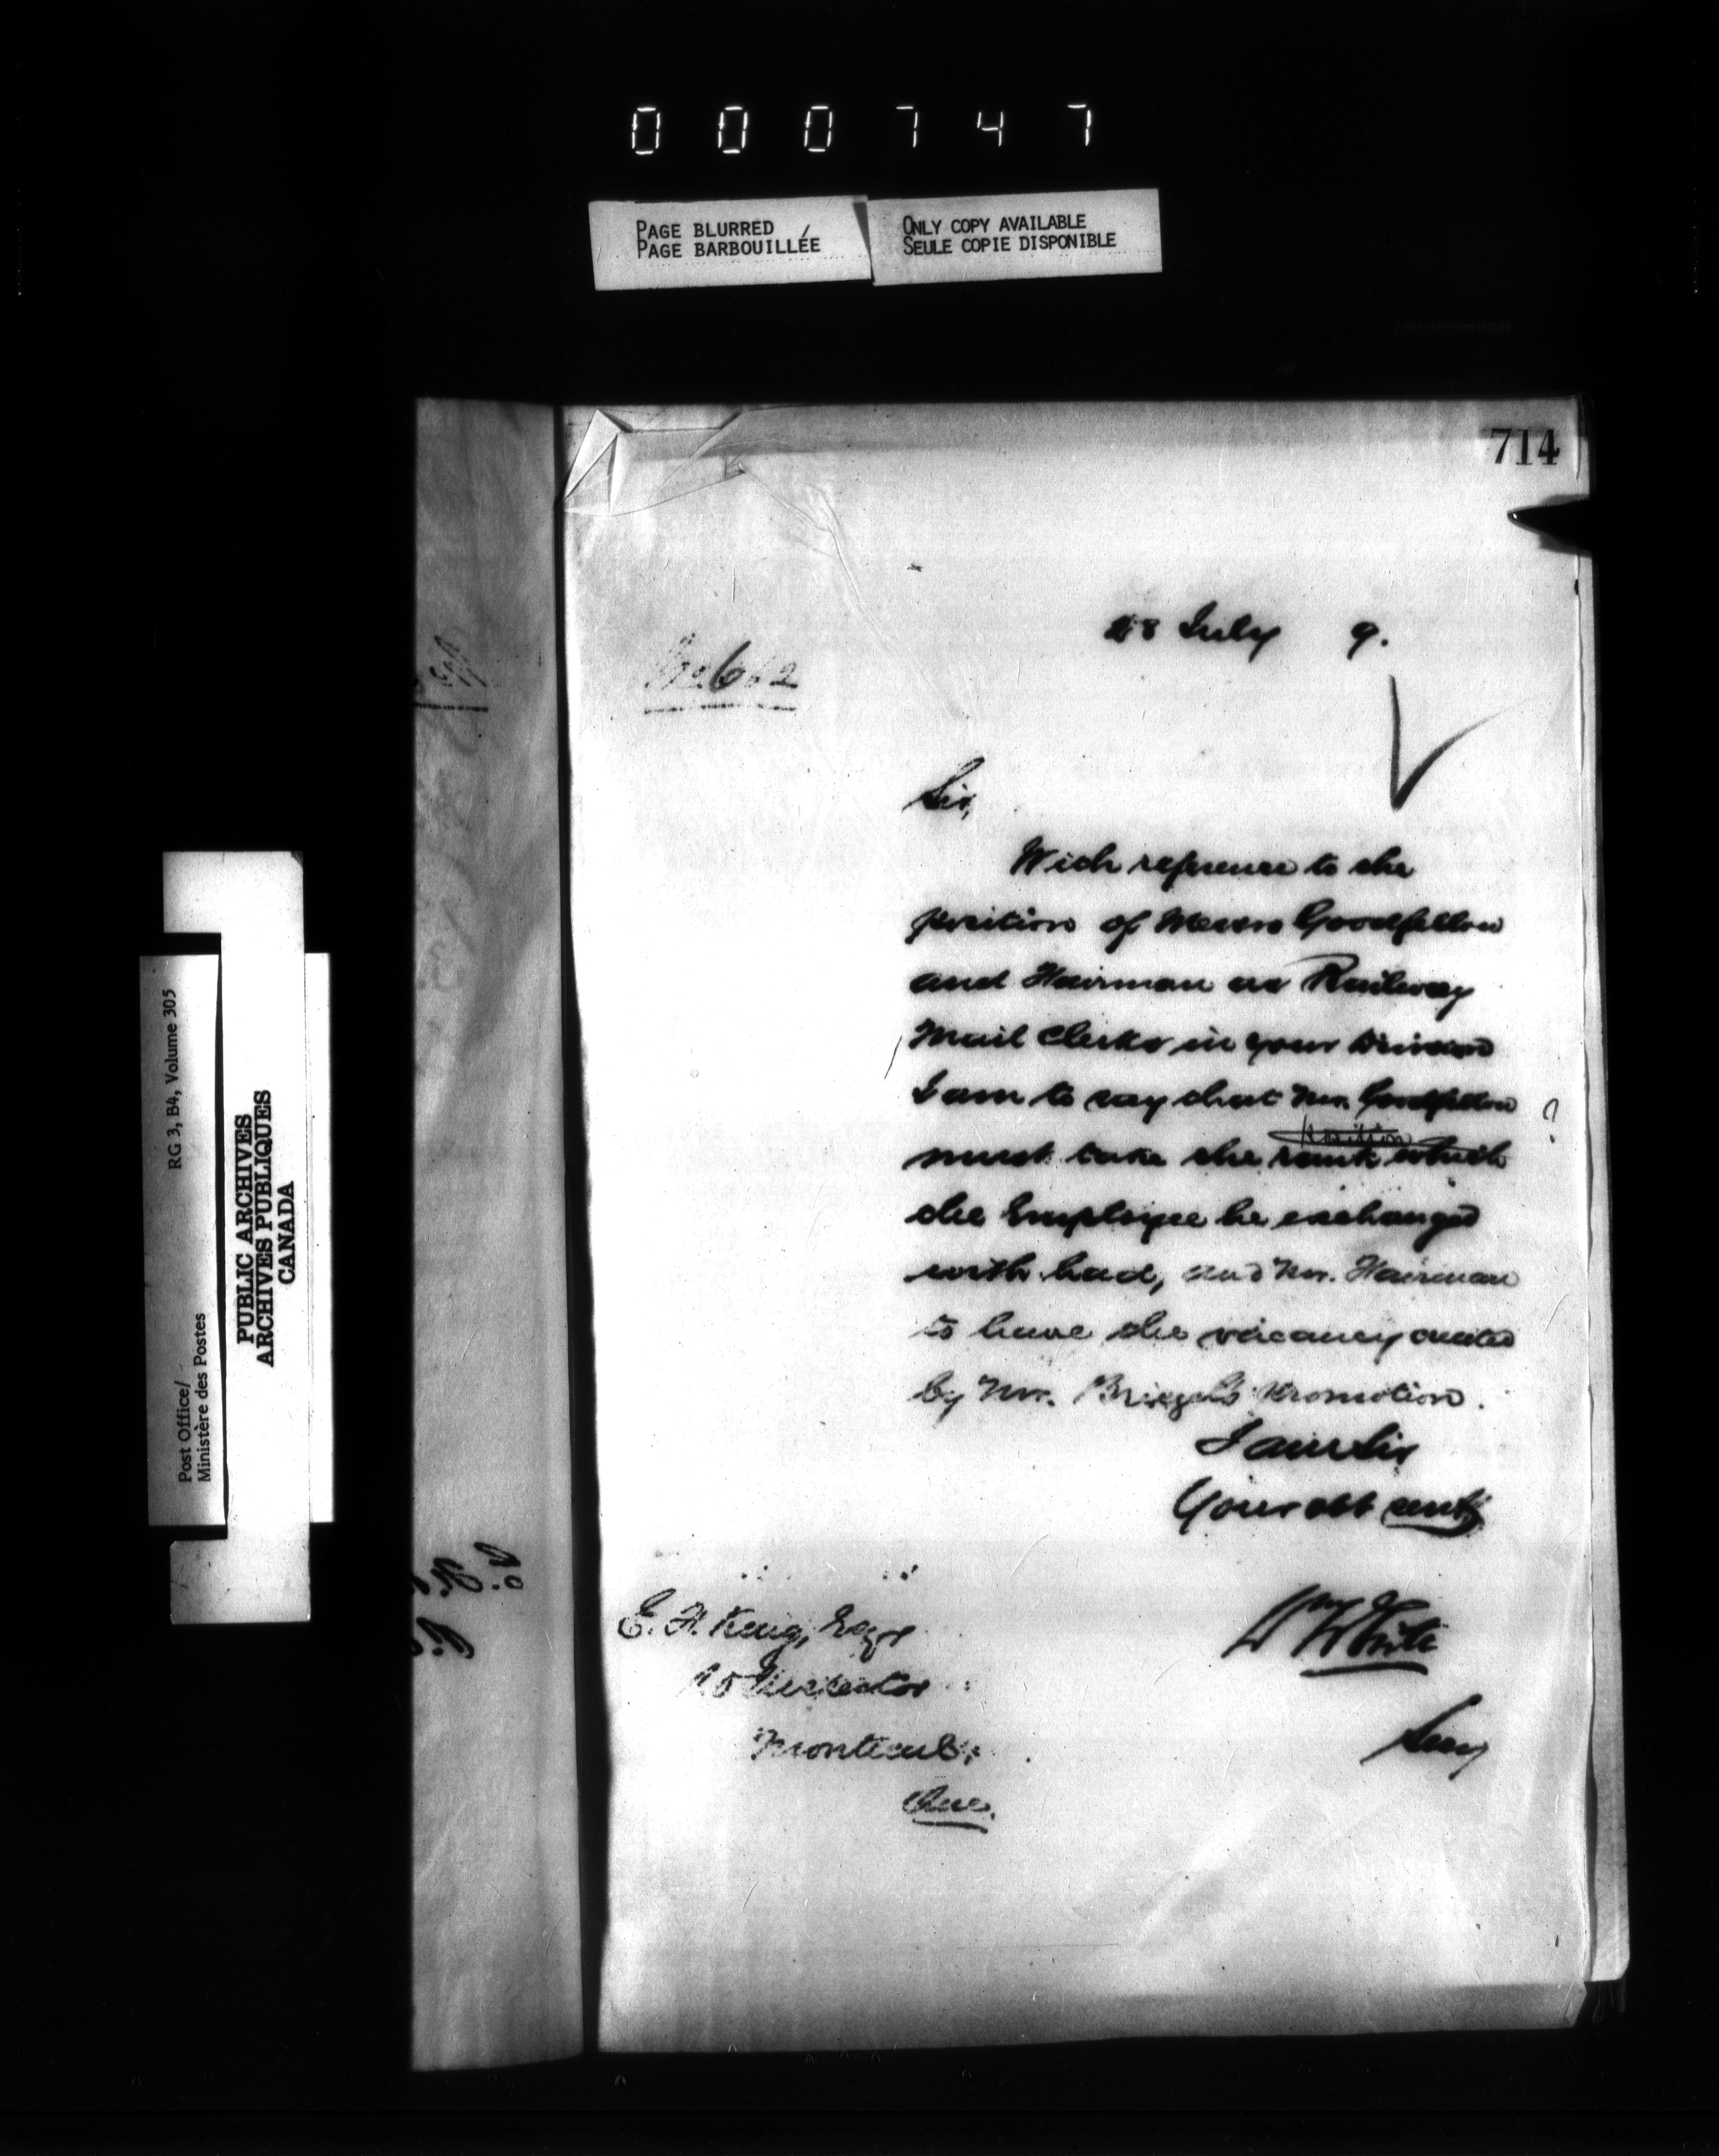 000747
PAGE BLURRED
PAGE BARBOUILLÉE
ONLY COPY AVAILABLE
SEULE COPIE DISPONIBLE
714
18 July 9.
No. 662
Sir,
With reference to the
position of Messrs Goodfellow
and Hairman as Railway
Mail Clerks in your Division
I am to say that Mr. Goodfellow ?
position
must take the rank which
the Employee he exchanged
with had, and Mr. Hairman
to have the vacancy created
by Mr. promotion.
I am Sir
Your obt servt
Wm White
Secy
E. F. King, Esqr
P O Inspector
Montreal,
Que.
RG 3, B4, Volume 305
Post Office/
Ministère des Postes
PUBLIC ARCHIVES
ARCHIVES PUBLIQUES
CANADA